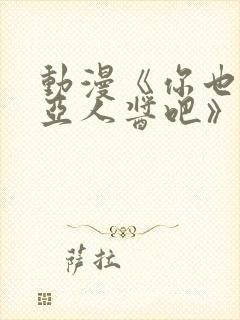 動漫《你也
亞人醬吧》
萨拉